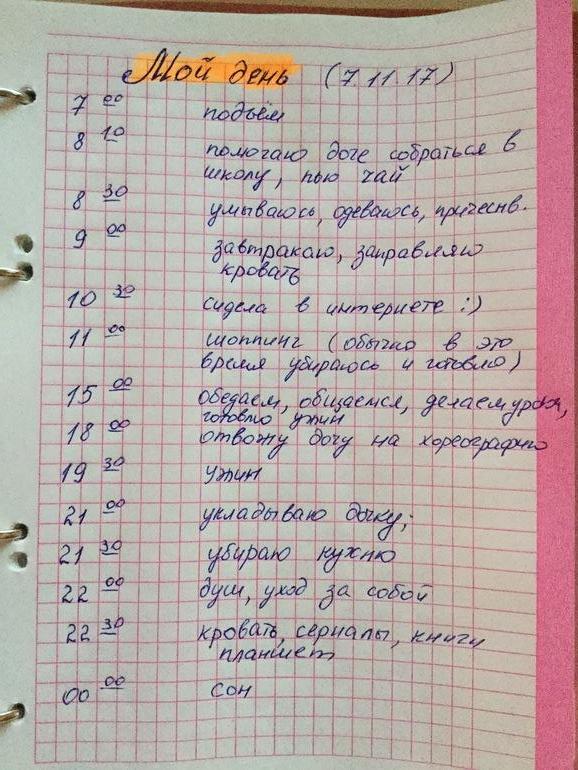 Мой день (7.11.17)
7 00 подъём
8 10 помогаю доче собраться в
школу, пью чай
8 30 умываюсь, одеваюсь, причесыв.
9 00 завтракаю, заправляю
кровать
10 30 сидела в интернете :)
11 00 шоппинг (обычно в это
время убираюсь и готовлю)
15 00 обедаем, общаемся, делаем уроки,
готовлю ужин
18 00 отвожу дочу на хореографию
19 30 ужин
21 00 укладываю дочку;
21 30 убираю кухню
22 00 душ, уход за собой
22 30 кровать, сериалы, книги
планшет
00 00 сон